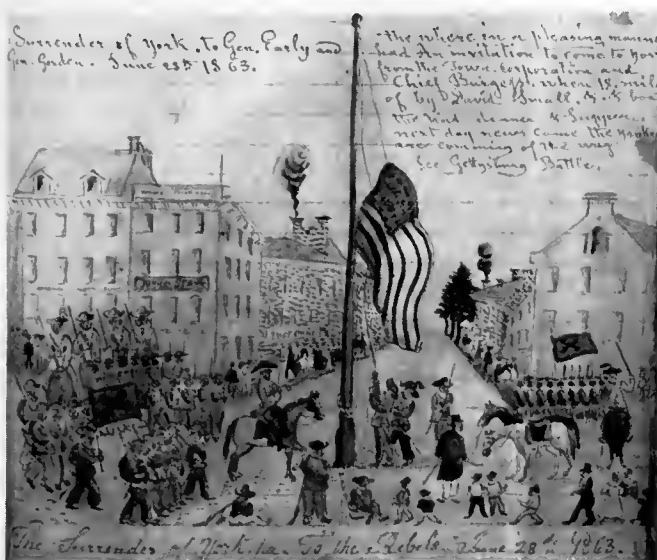 Surrender of York, to Gen. Early and
Gen. Gordon. June 28th 1863.
the where in a pleasing manner
had an invitation to come to York
from the Town Corporation and
Chief Burgess, when 18 mile
of by David Small,
the
next day news came the Yankees
are comming of the way
See Gettysburg Battle.
The Surrender of York, Pa. To the Rebels June 28th 1863.